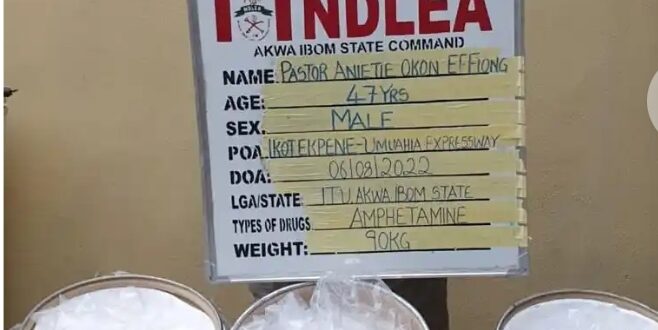 NDLEA
AKWA IBOM STATE COMMAND
NAME: PASTOR ANIETIE OKON EFFIONG
AGE: 47YRS
SEX. MALE
POA: IKOTEKPENE-UMUAHIA EXPRESSWAY
DOA: 06/08/2022
LGA/STATE: ITU, AKWA IBOM STATE
TYPES OF DRUGS: AMPHETAMINE
WEIGHT: 90KG